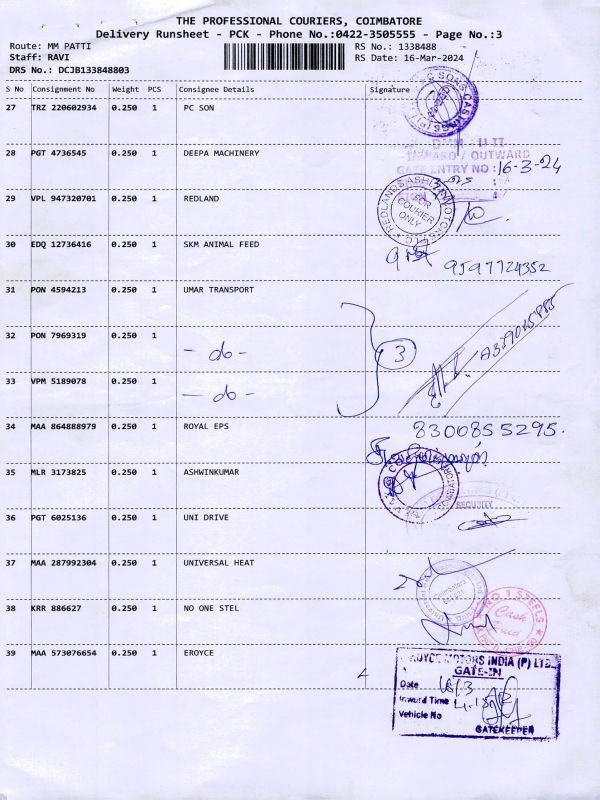 THE PROFESSIONAL COURIERS, COIMBATORE
Delivery Runsheet - PCK - Phone No.:0422-3505555 - Page No.:3
Route: MM PATTI RS No.: 1338488
Staff: RAVI RS Date: 16-Mar-2024
DRS No.: DCJB133848803
S No Consignment No Weight PCS Consignee Details Signature
27 TRZ 220602934 0.250 1 PC SON
28 PGT 4736545 0.250 1 DEEPA MACHINERY
INWARD / OUTWARD
GATE ENTRY NO : 16-3-24
29 VPL 947320701 0.250 1 REDLAND
REDLANDS ASHLYN MOTORS
FOR COURIER ONLY
30 EDQ 12736416 0.250 1 SKM ANIMAL FEED
9597724352
31 PON 4594213 0.250 1 UMAR TRANSPORT
32 PON 7969319 0.250 1 - do -
3
33 VPM 5189078 0.250 1 - do -
34 MAA 864888979 0.250 1 ROYAL EPS 8300855295.
35 MLR 3173825 0.250 1 ASHWINKUMAR
SECURITY
36 PGT 6025136 0.250 1 UNI DRIVE
37 MAA 287992304 0.250 1 UNIVERSAL HEAT
Coimbatore
38 KRR 886627 0.250 1 NO ONE STEL
NO 1 STEELS
Cash Paid
39 MAA 573076654 0.250 1 EROYCE
ROYCE MOTORS INDIA (P) LTD.
GATE-IN
Date 16/3
Inward Time 4.15
Vehicle No
GATEKEEPER